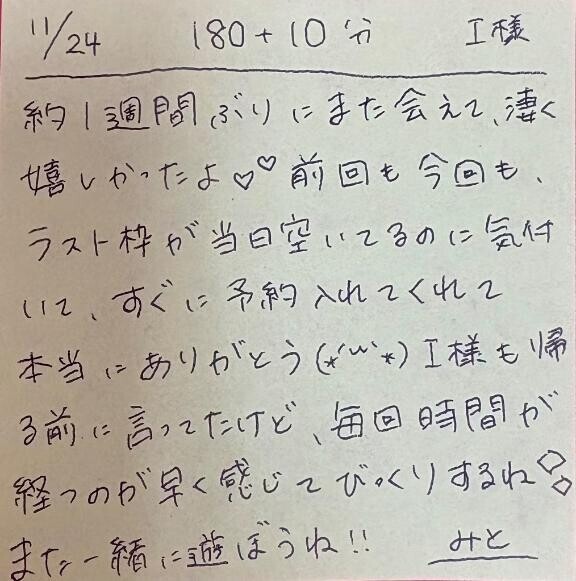 11/24 180+10分 I様
約1週間ぶりにまた会えて、凄く
嬉しかったよ♡♡前回も今回も、
ラスト枠が当日空いてるのに気付
いて、すぐに予約入れてくれて
本当にありがとう(*´ω`*)I様も帰
る前に言ってたけど、毎回時間が
経つのが早く感じてびっくりするね
また一緒に遊ぼうね!! みと